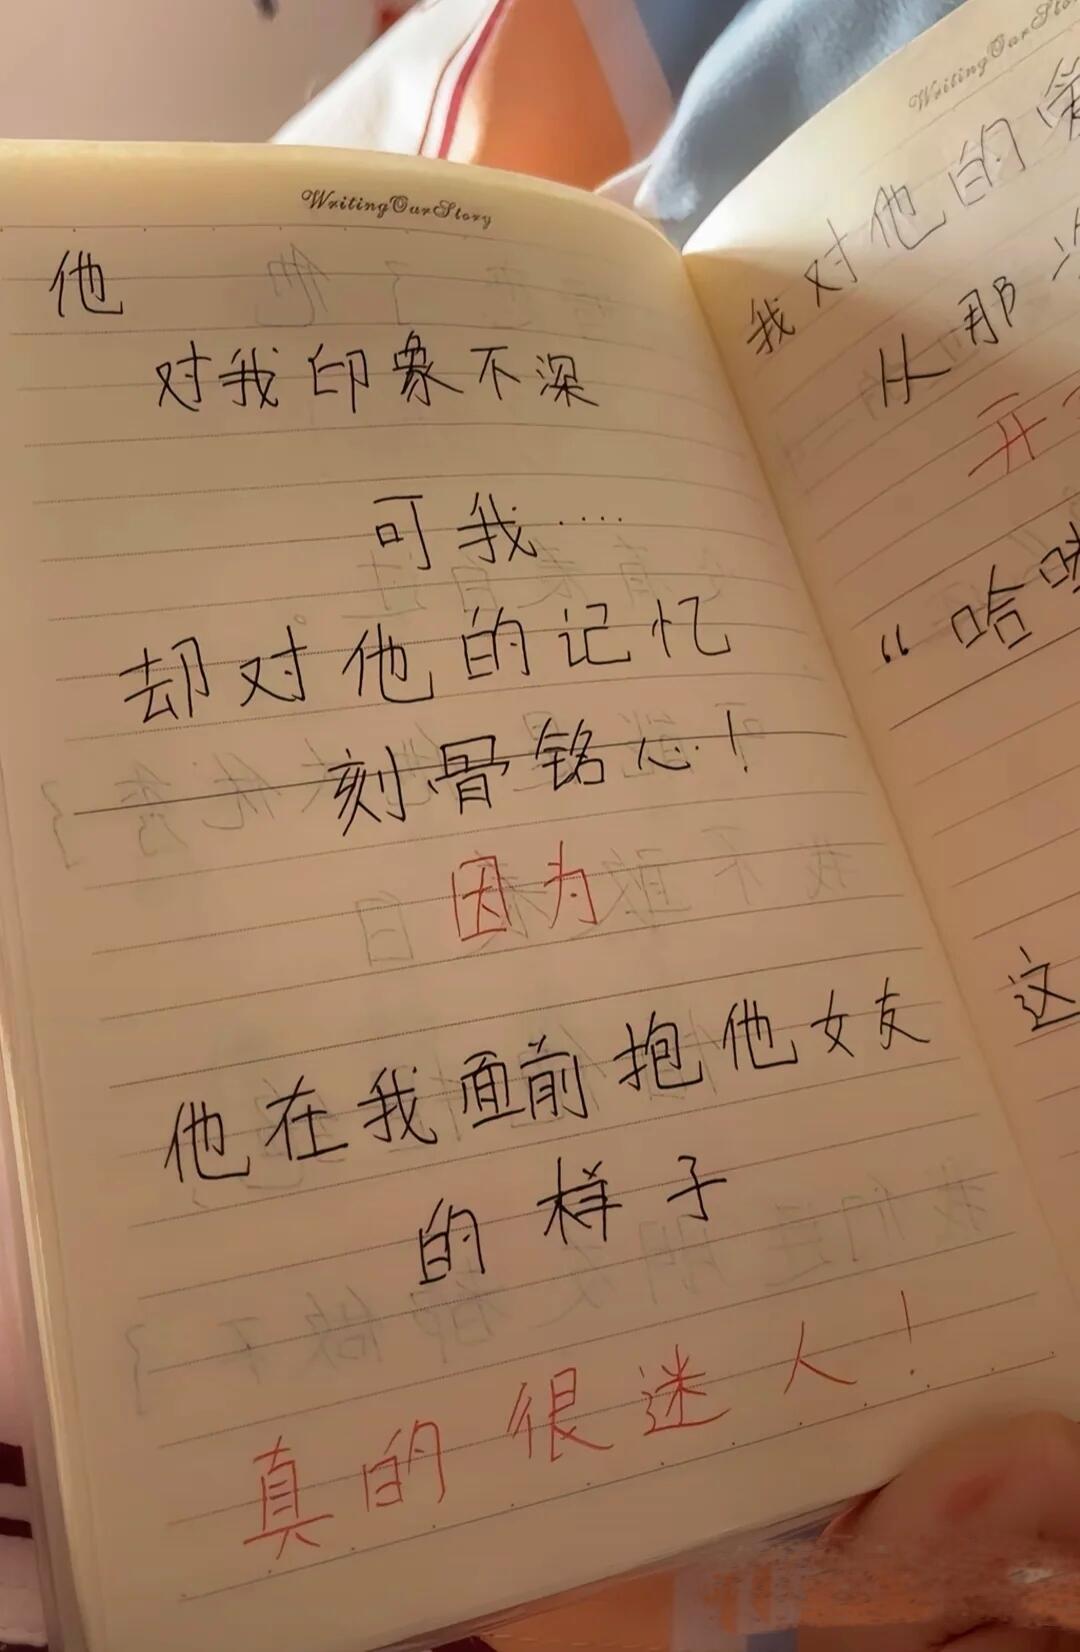 WritingOurStory
他
对我印象不深
可我····
却对他的记忆
刻骨铭心！
因为
他在我面前抱他女友
的样子
真的很迷人！
WritingOurSto
我对他的
从那
开
“哈
这